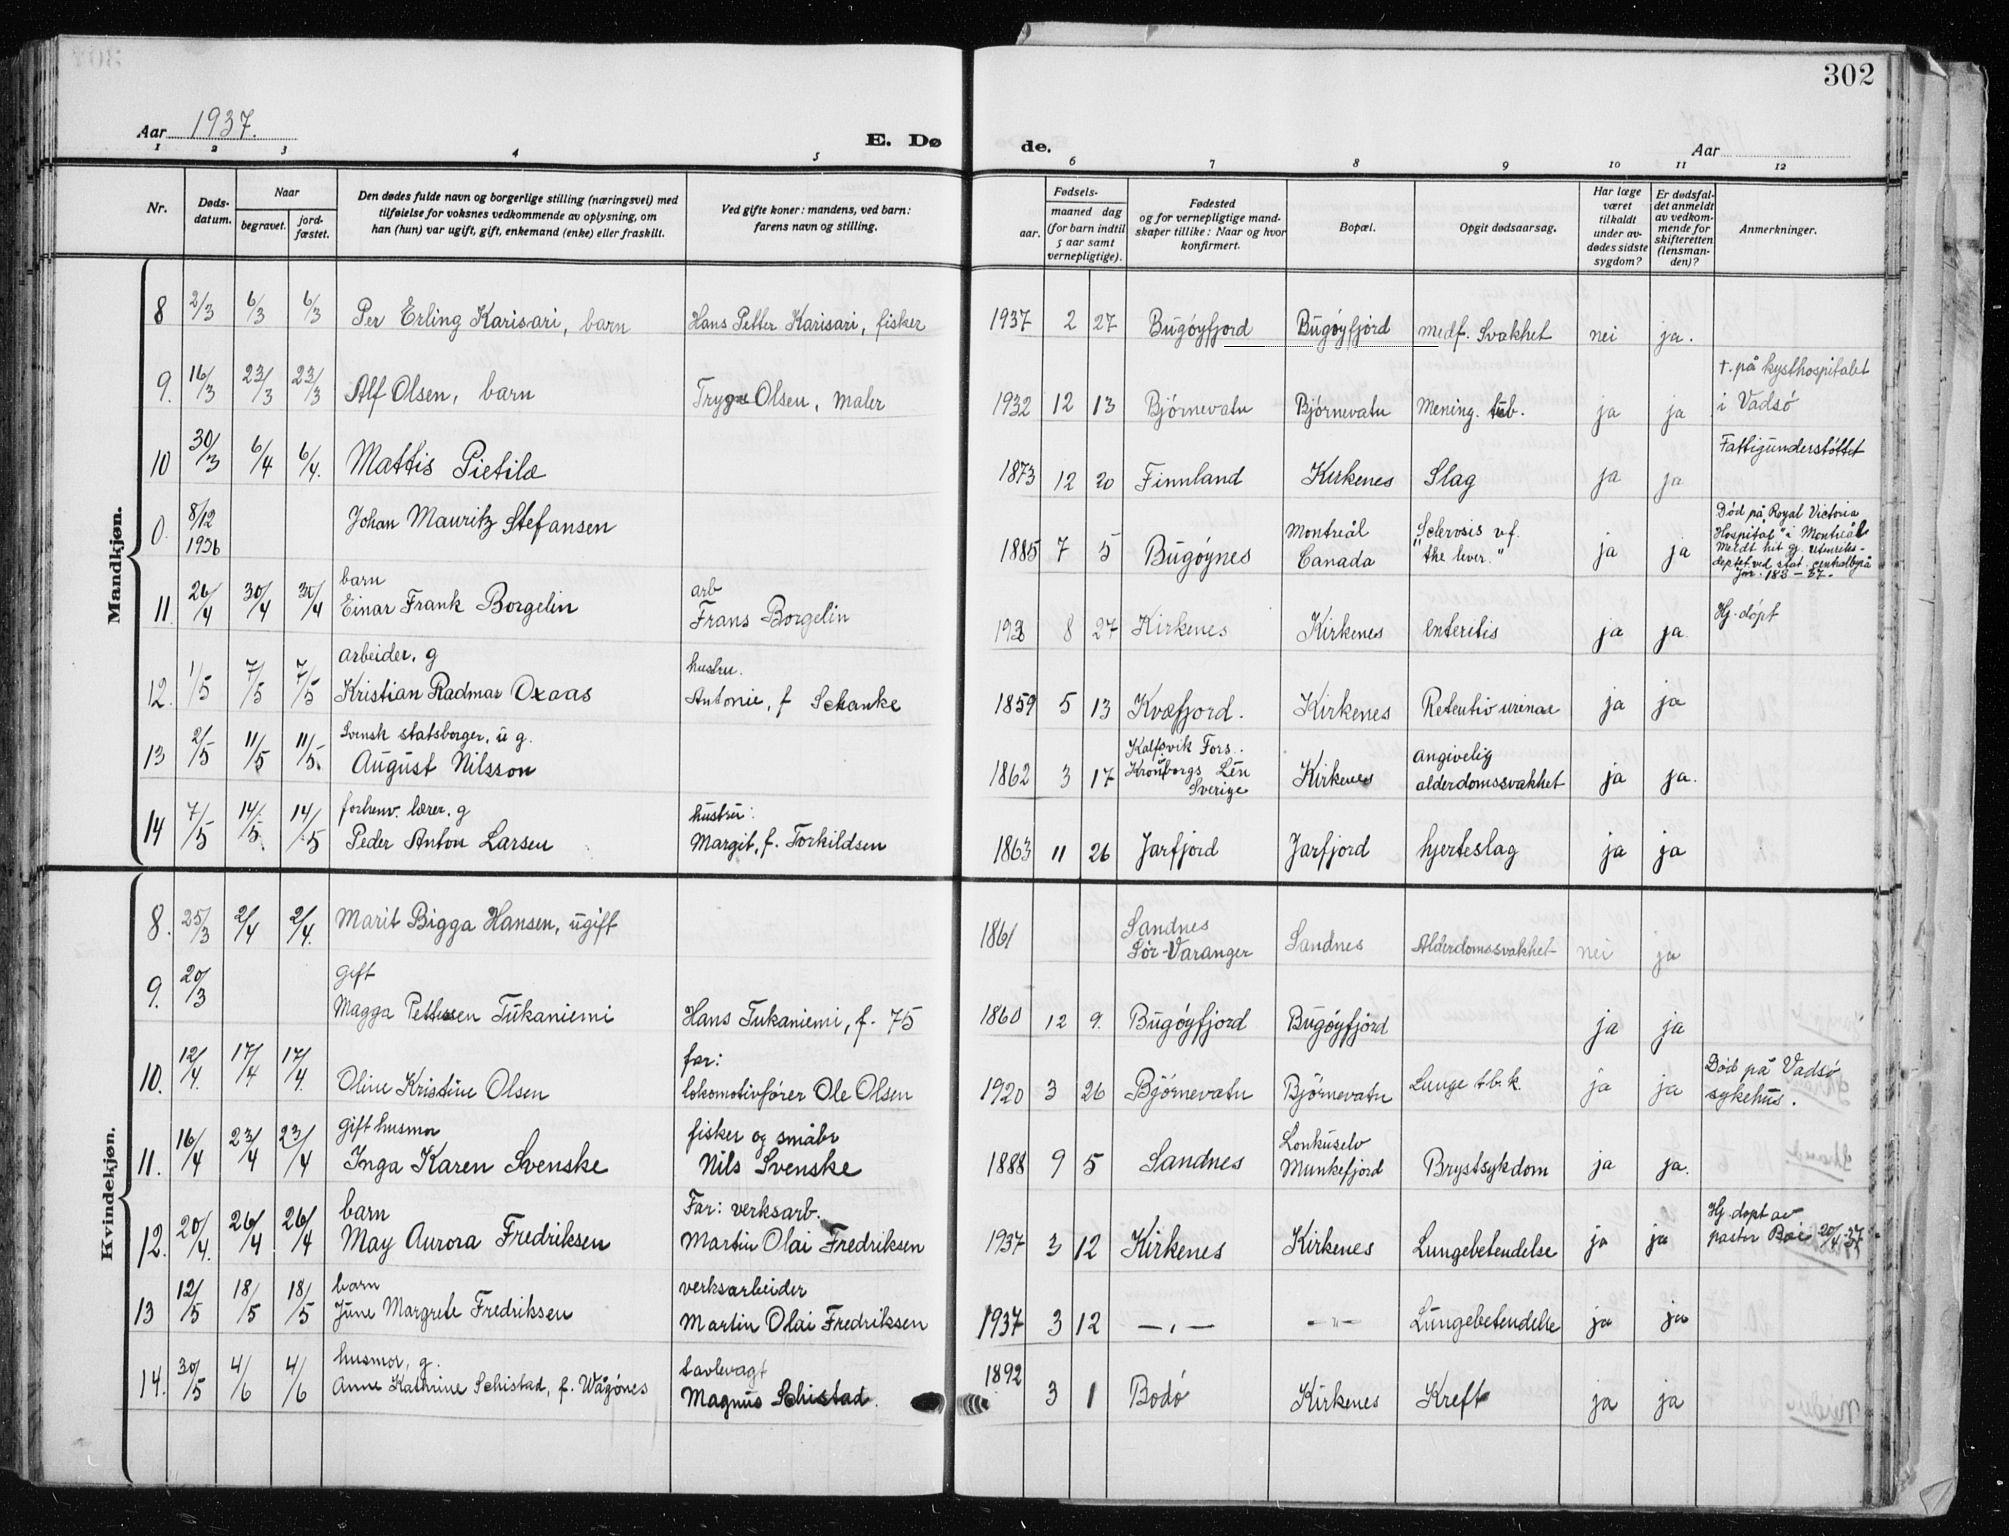 302
Aar 1937.
E. Døde.
Aar
1 2 3 4 5 6 7 8 9 10 11 12
Nr.
Døds-datum.
Naar
begravet.
jord-fæstet.
Den dødes fulde navn og borgerlige stilling (næringsvei) med
tilføielse for voksnes vedkommende av oplysning, om
han (hun) var ugift, gift, enkemand (enke) eller fraskilt.
Ved gifte koner: mandens, ved barn:
farens navn og stilling.
Fødsels-
aar.
maaned dag
(for barn indtil
5 aar samt
vernepligtige).
Fødested
og for vernepligtige mand-
skaper tillike: Naar og hvor
konfirmert.
Bopæl.
Opgit dødsaarsag.
Har læge
været
tilkaldt
under av-
dødes sidste
sygdom?
Er dødsfal-
det anmeldt
av vedkom-
mende for
skifteretten
(lensman-
den)?
Anmerkninger.
Mandkjøn.
8 2/3 6/3 6/3 Per Erling Karisari, barn Hans Petter Karisari, fisker 1937 2 27 Bugøyfjord Bugøyfjord medf. Svakhet nei ja.
9. 16/3 23/3 23/3 Alf Olsen, barn Trygve Olsen, maler 1932 12 13 Bjørnevatn Bjørnevatn Mening. tub. ja ja † på kysthospitalet
i Vadsø
10 30/3 6/4 6/4. Mattis Pietilæ 1873 12 20 Finnland Kirkenes Slag ja ja Fattigunderstøttet
0. 8/12 1936 Johan Mauritz Stefansen 1885 7 5 Bugøynes Montreal
Canada Sclerosis v.f.
"the lever." ja ja Død på Royal Victoria
Hospital" i Montreal
Meldt hit gj. utenriks-
deptet ved stat. centralbyrå
Jnr. 183-37.
11. 26/4 30/4 30/4 barn
Einar Frank Borgelin arb
Frans Borgelin 8 27 Kirkenes Kirkenes enteritis ja ja. Hj. døpt
12. 1/5 7/5 7/5 arbeider, g
Kristian Radmar Oxaas hustru.
Antonie, f Schanke 1859 5 13 Kvæfjord. Kirkenes Retentio urinae ja ja
13 2/5 11/5 11/5. Svensk statsborger, u g.
August Nilsson 1862 3 17 Kalfsvik Fors.
Kronborgs Len
Sverige Kirkenes angivelig
alderdomssvakhet ja ja.
14 7/5 14/5. 14/5 forhenv. lærer. g
Peder Anton Larsen hustru:
Margit, f. Torkildsen 1863 11 26 Jarfjord Jarfjord hjerteslag ja ja
Kvindekjøn.
8. 25/3 2/4 2/4. Marit Bigga Hansen, ugift 1861 Sandnes
Sør-Varanger Sandnes Alderdomssvakhet nei ja
9. 20/3 gift
Magga Pettersen Tukaniemi Hans Tukaniemi, f. 75 1860 12 9. Bugøyfjord Bugøyfjord ja ja
10. 12/4. 17/4 17/4. Oline Kristine Olsen far:
lokomotivfører Ole Olsen 1920 3 26 Bjørnevatn Bjørnevatn Lunge t.b.k. ja ja Død på Vadsø
sykehus.
11. 16/4 23/4 23/4 gift husmor
Inga Karen Svenske fisker og småbr
Nils Svenske 1888 9 5 Sandnes Lonkuselv
Munkefjord Brystsykdom ja ja.
12. 20/4. 26/4 26/4 barn
May Aurora Fredriksen Far: verksarb.
Martin Olai Fredriksen 1937 3 12 Kirkenes Kirkenes Lungebetendelse ja ja Hj. døpt av
pastor Bøe 20/4 37
13 12/5 18/5 18/5 barn
June Margrete Fredriksen verksarbeider
Martin Olai Fredriksen 1937 3 12 — „ — — „ — Lungebetendelse ja ja
14. 30/5 4/6 4/6 husmor, g.
Anne Kathrine Schistad, f. Wågønes tavlevagt
Magnus Schistad. 1892 3 1 Bodø Kirkenes Kreft ja ja